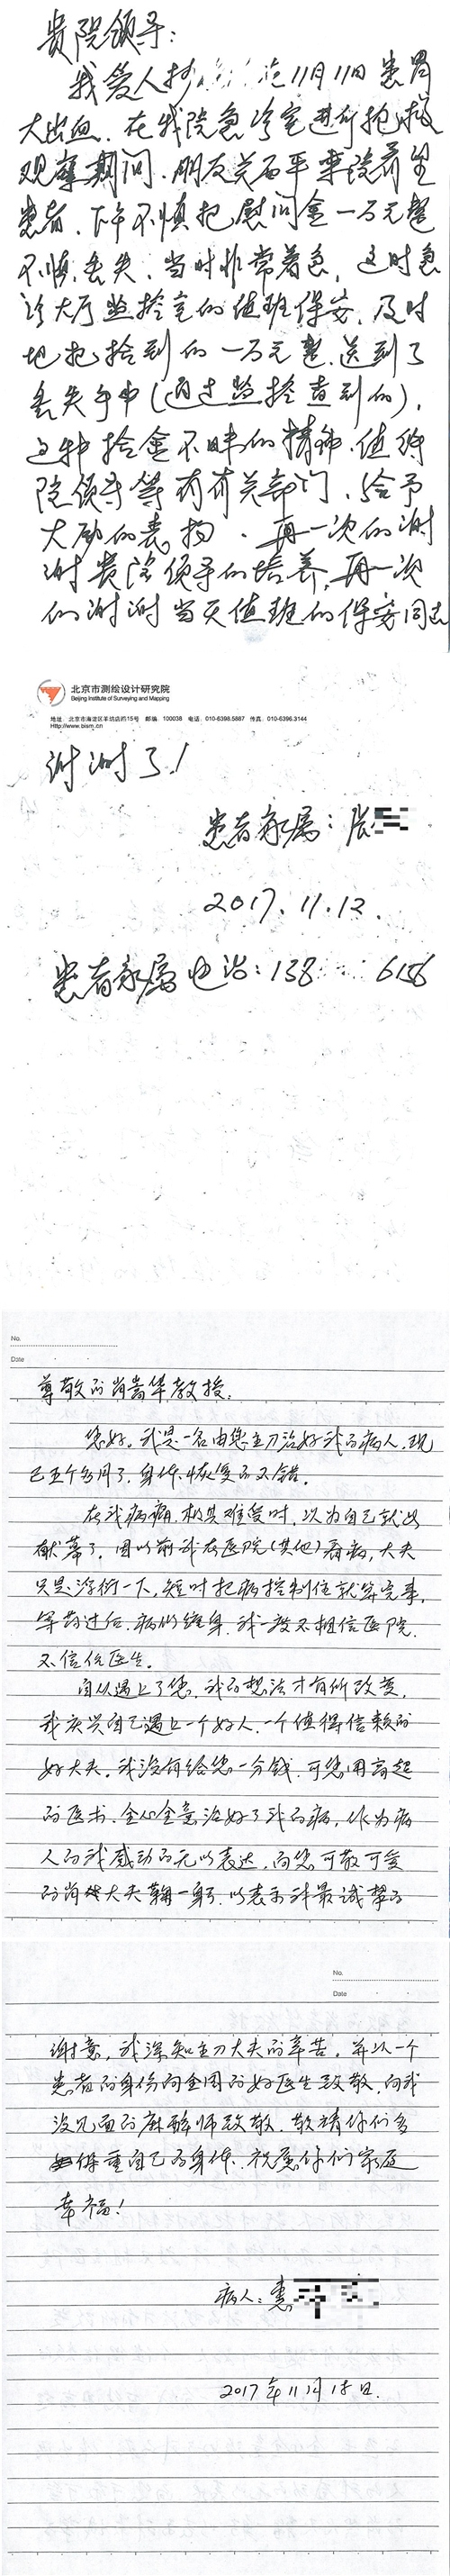 贵院领导：
我爱人 于11月11日患胃
大出血．在我院急诊室进行抢救
观察期间．朋友关西平来院看望
患者．下午不慎把慰问金一万元整
不慎丢失．当时非常着急，这时急
诊大厅监控室的值班保安．及时
地把捡到的一万元整．送到了
丢失手中（通过监控查到的）．
这种拾金不昧的精神．值得
院领导等有有关部门．给予
大励的表扬．再一次的谢
谢贵院领导的培养，再一次
的谢谢当天值班的保安同志
北京市测绘设计研究院
Beijing Institute of Surveying and Mapping
地址：北京市海淀区羊坊店路15号 邮编：100038 电话：010-6398.5887 传真：010-6396.3144
Http://www.bism.cn
谢谢了！
患者家属：张
2017．11．12．
患者家属电话：138 6156
No.
Date
尊敬的肖嵩华教授：
您好．我是一名由您主刀治好我的病人．现
已五个多月了．身体恢复的不错．
在我病痛．极其难受时．以为自己就此
献幕了．因以前我在医院（其他）看病，大夫
只是浮衍一下，短时把病控制住就算完事．
等药过后．病仍缠身．我一度不相信医院．
不信任医生．
自从遇上了您．我的想法才有所改变．
我庆兴自己遇上一个好人．一个值得信赖的
好大夫．我没有给您一分钱．可您用高超
的医术．全心全意治好了我的病，作为病
人的我感动的无以表达．向您可敬可爱
的肖大夫鞠一躬．以表示我最诚挚的
No.
Date
谢意，我深知主刀大夫的辛苦．并以一个
患者的身份向全国的好医生致敬．向我
没见面的麻醉师致敬．敬请你们多
保重自己的身体．祝愿你们家庭
幸福！
病人：惠
2017年11月15日．